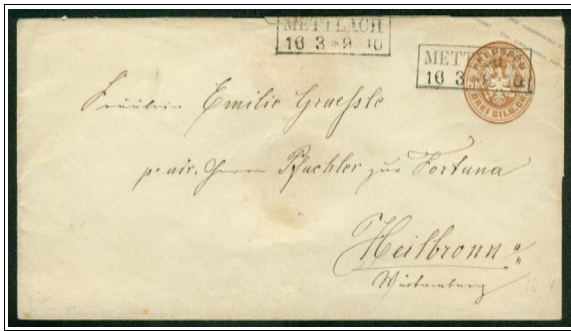 METTLACH
16 3 * 9 10
METT
16 3 10
PREUSSEN
DREI SILB. GR.
Fräulein Emilie Graessle
p. adr. Herrn Pfaehler zur Fortuna
Heilbronn a/n
Würtemburg